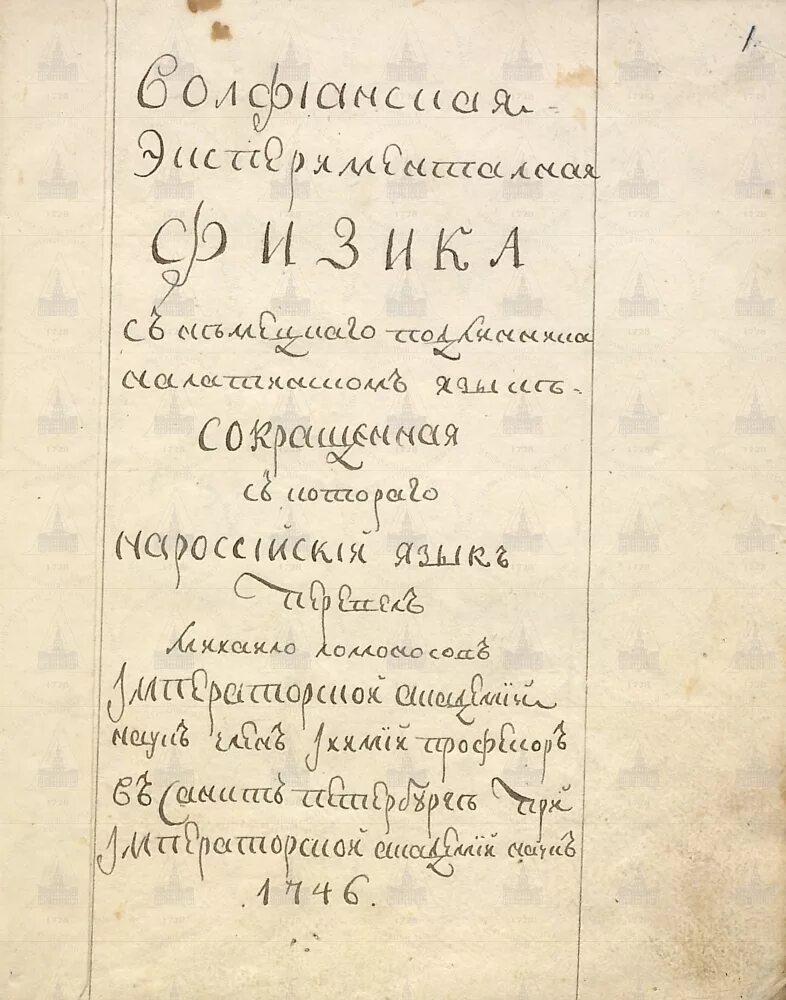 1
Волфіанская
Эксперяменталная
ФИЗИКА
съ нѣмецкаго подлинника
налатинскомъ языкѣ
сокращенная
съ котораго
народоссійскій языкъ
перевелъ
Михайло Ломоносовъ
Імператорской академіи
наукъ членъ Ихиміи професоръ
въ Санктъ петербургѣ При
Імператорской академіи наукъ
.1746.